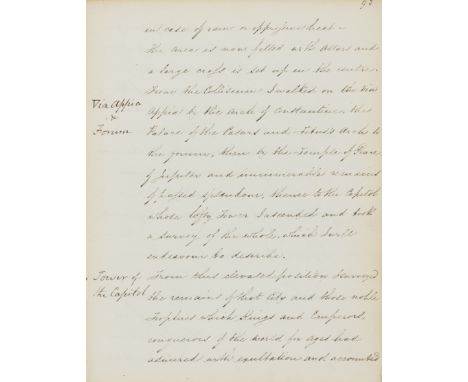 95
in case of rain or oppressive heat –
the area is now filled with altars and
a large cross is set up in the centre.
From the Colliseum I walked on the Via
Via Appia
&
Forum
Appia by the Arch of Constantine, the
Palace of the Cesars and Titus's Arch to
the forum, then by the Temple of Peace,
of Jupiter and innumerable remains
of passed splendour, thence to the Capitol
whose lofty Tower I ascended and took
a survey of the whole, which I will
endeavour to describe.
Tower of
the Capitol
From this elevated position I surveyed
the remains of that City and those noble
Trophies which Kings and Emperors,
conquerors of the world for ages had
admired with exultation and accounted